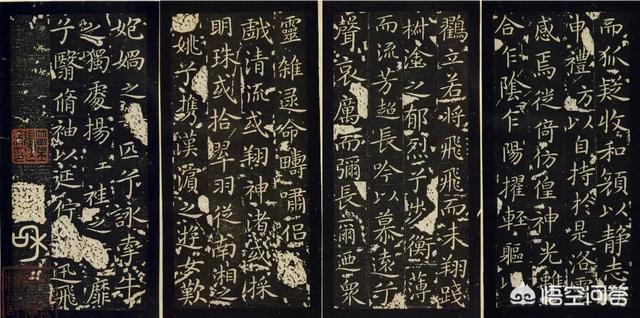 而狐疑收和顏以静志
申禮方以自持於是洛靈
感焉徙倚仿偟神光離
合乍陰乍陽擢輕軀以
鸛立若將飛飛而未翔踐
椒塗之郁烈兮步衡薄
而流芳超長吟以慕遠兮
聲哀厲而彌長爾迺衆
靈雜遝命疇肅侶
戲清流或翔神渚或採
明珠或拾翠羽從南湘之
姚兮攜漢濱之遊女歎
妃媧之匹兮詠牽牛
之獨處揚袿之靡
兮翳脩袖以延佇迅飛
悟空问答